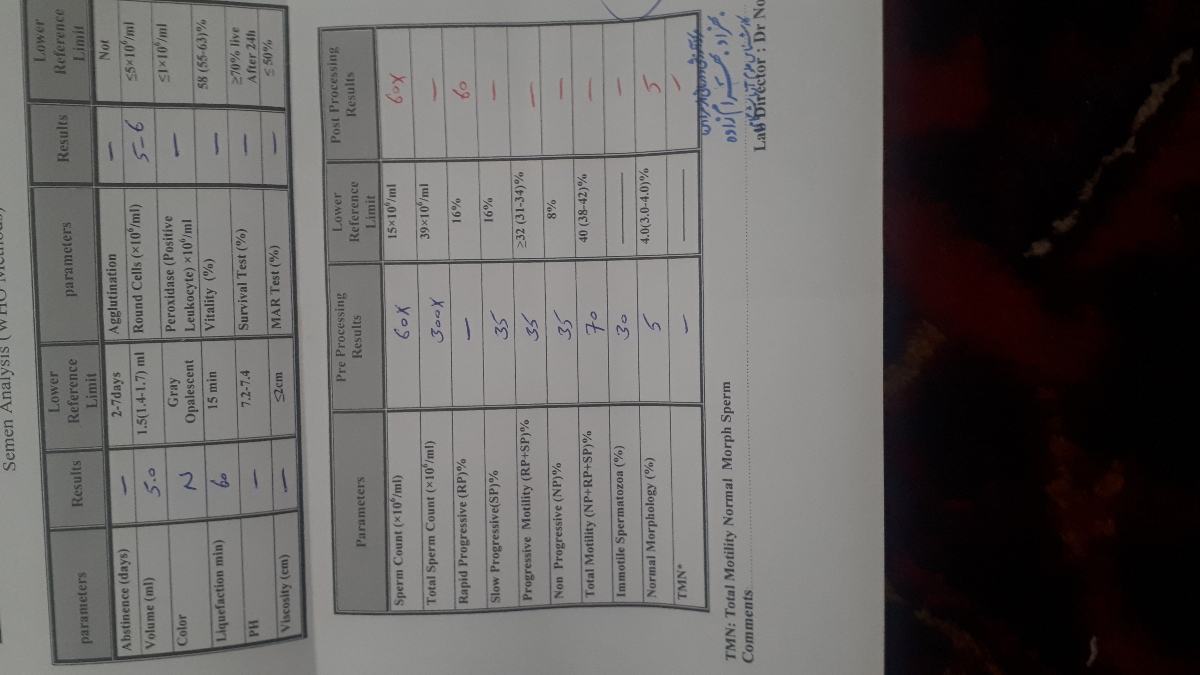 Semen Analysis (WHO Methods)
parameters Results Lower Reference Limit parameters Results Lower Reference Limit
Abstinence (days) — 2-7days Agglutination — Not
Volume (ml) 5.0 1.5(1.4-1.7) ml Round Cells (×10⁶/ml) 5-6 ≤5×10⁶/ml
Color N Gray Opalescent Peroxidase (Positive Leukocyte) ×10⁶/ml — ≤1×10⁶/ml
Liquefaction min) 60 15 min Vitality (%) — 58 (55-63)%
PH — 7.2-7.4 Survival Test (%) — ≥70% live After 24h
Viscosity (cm) — ≤2cm MAR Test (%) — ≤ 50%
Parameters Pre Processing Results Lower Reference Limit Post Processing Results
Sperm Count (×10⁶/ml) 60X 15×10⁶/ml 60X
Total Sperm Count (×10⁶/ml) 300X 39×10⁶/ml —
Rapid Progressive (RP)% — 16% 60
Slow Progressive(SP)% 35 16% —
Progressive Motility (RP+SP)% 35 ≥32 (31-34)% —
Non Progressive (NP)% 35 8% —
Total Motility (NP+RP+SP)% 70 40 (38-42)% —
Immotile Spermatozoa (%) 30 —
Normal Morphology (%) 5 4.0(3.0-4.0)% 5
TMN* — —
TMN: Total Motility Normal Morph Sperm
Comments
Lab Director : Dr No